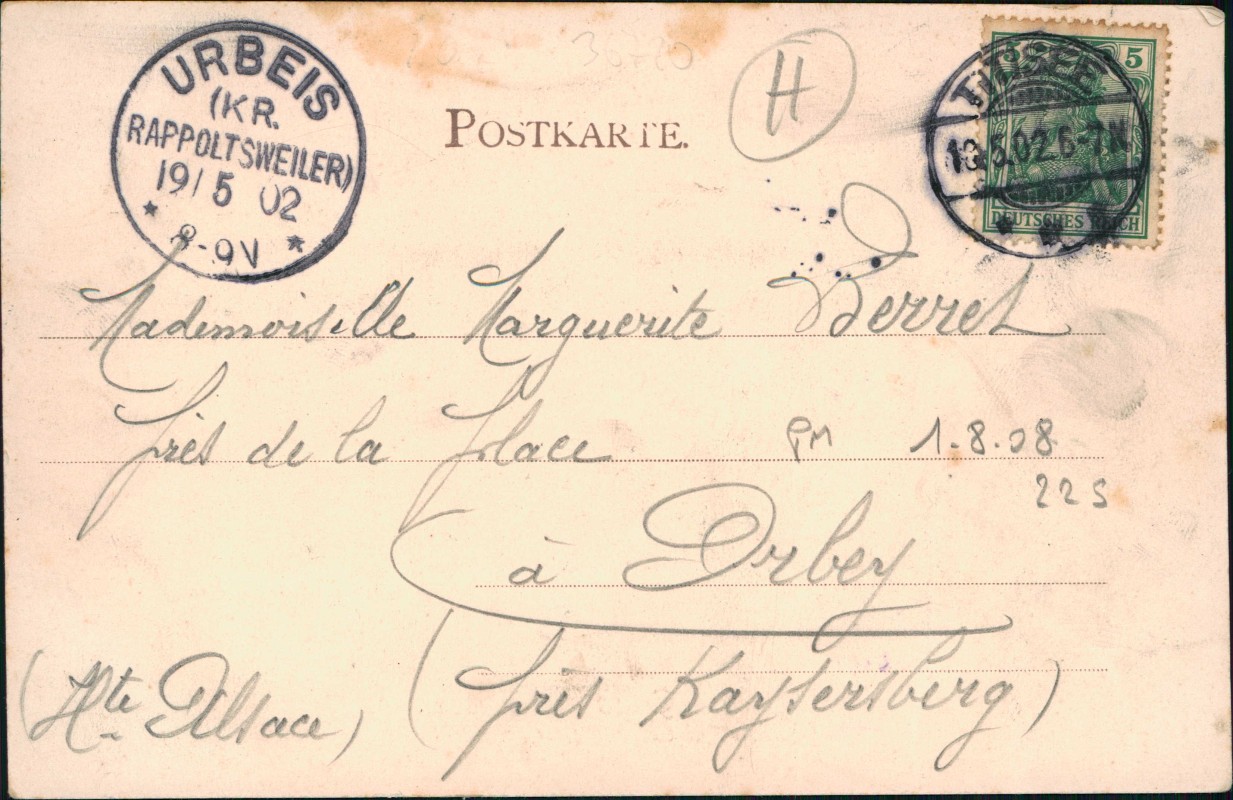 URBEIS
(KR.
RAPPOLTSWEILER)
19/5 02
8-9V
36720
H
POSTKARTE.
TITISEE
5.02.6-7N.
5
DEUTSCHES REICH
Mademoiselle Marguerite
près de la place
PM 1-8-08
225
à Orbey
(près Kaysersberg)
(Hte Alsace)